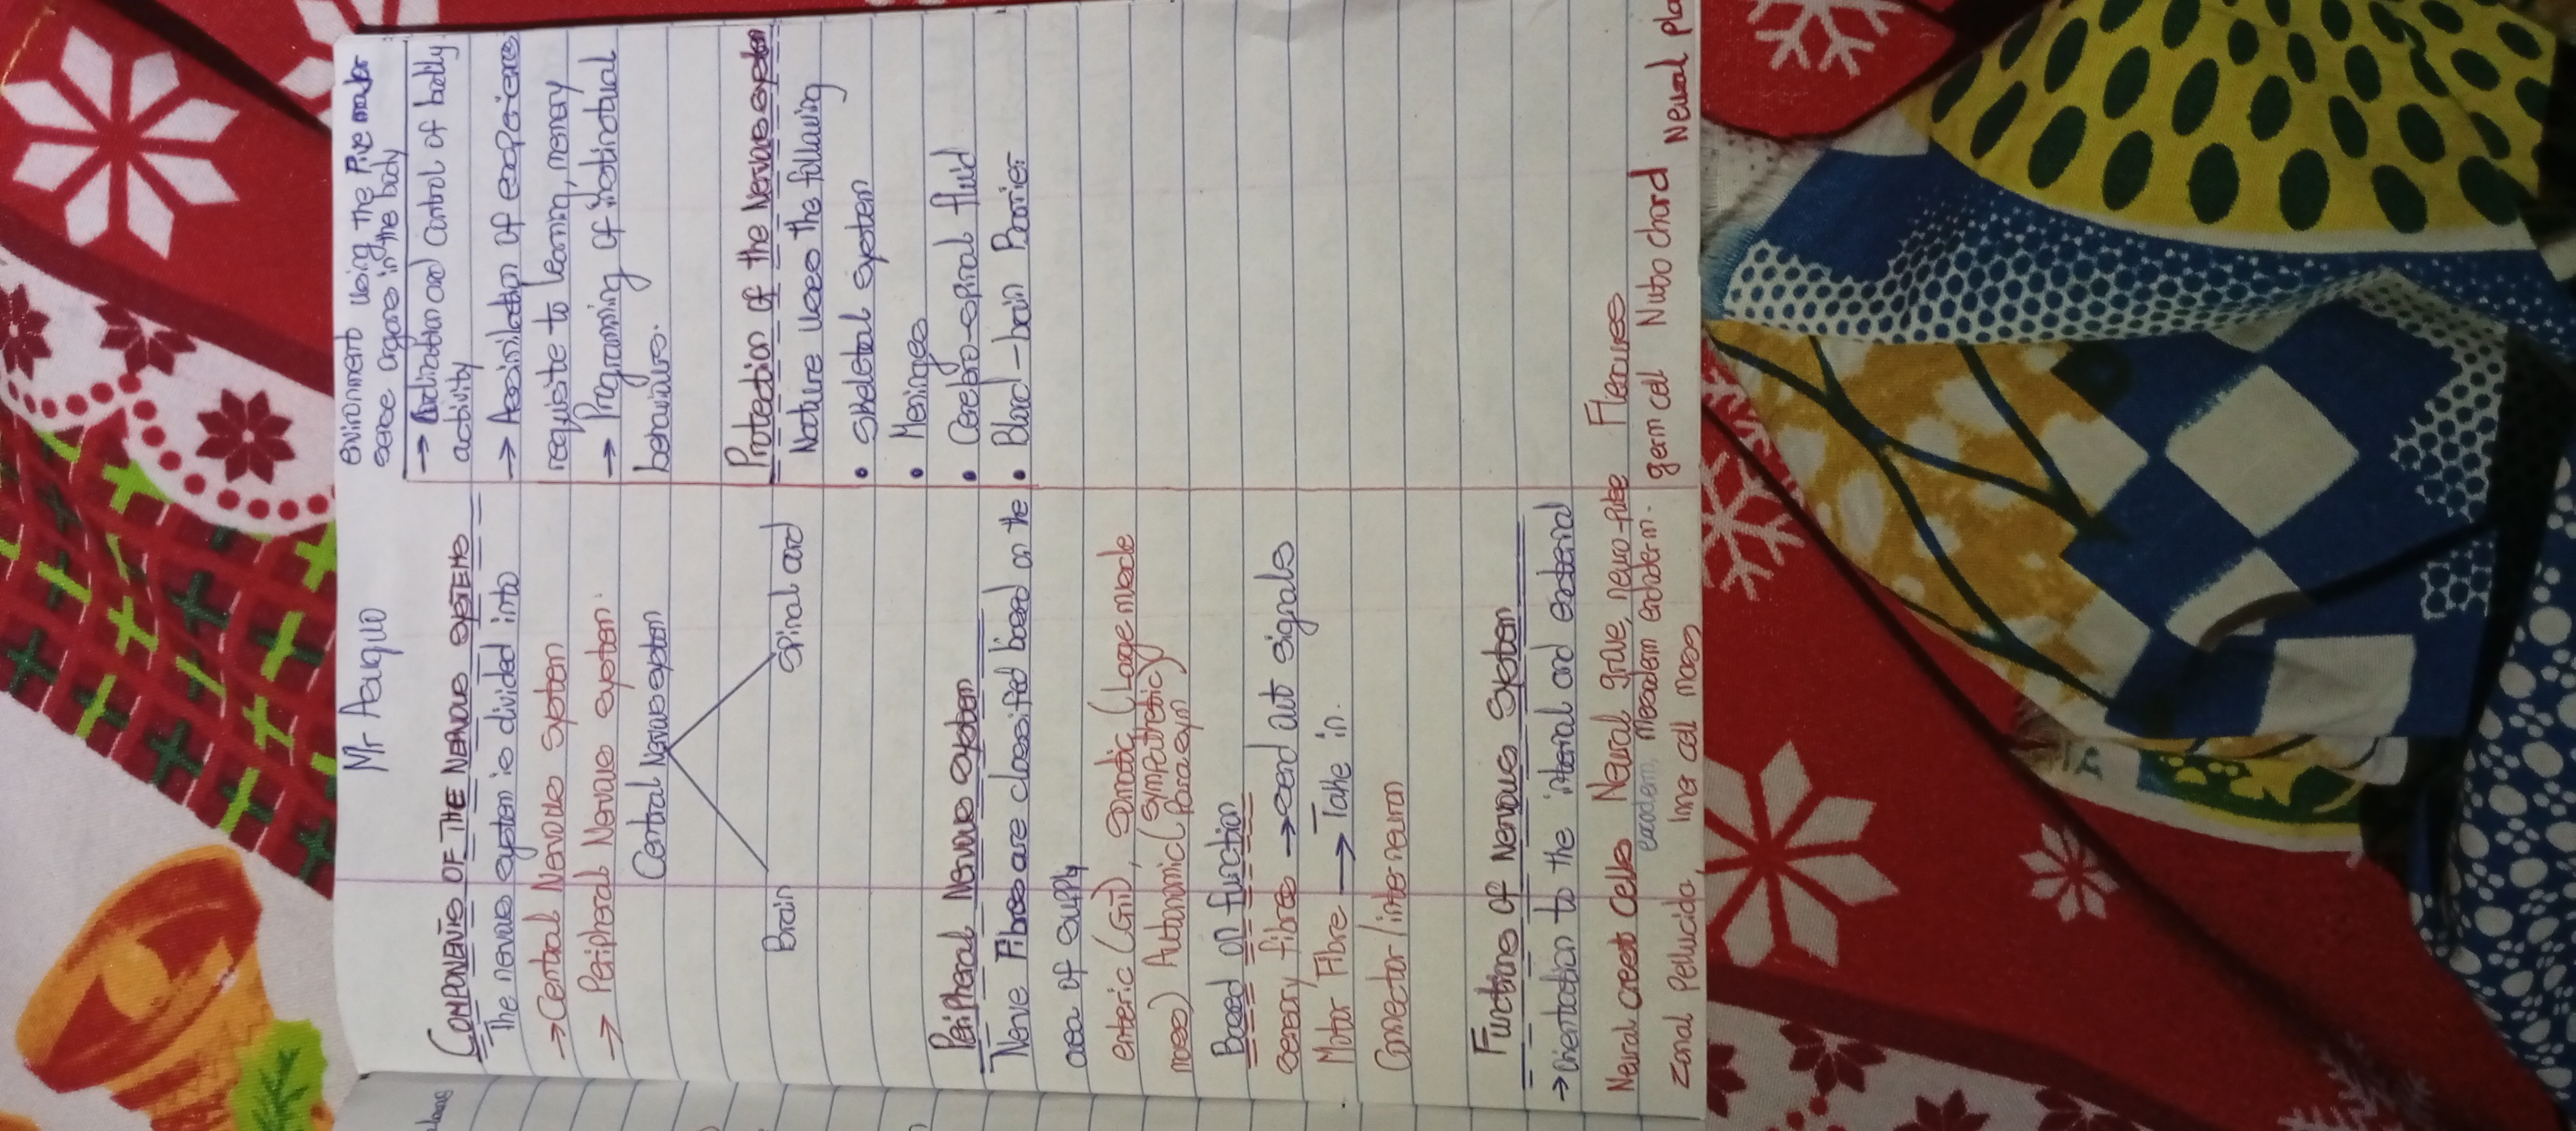 Mr Asuquo
COMPONENTS OF THE NERVOUS SYSTEMS
The nervous system is divided into
→ Central Nervous System
→ Peripheral Nervous system.
Central Nervous system
Brain
Spinal cord
Peripheral Nervous system
Nerve Fibres are classified based on the
area of supply
enteric (GIT), Somatic (Large muscle
mass) Autonomic (sympathetic)
parasym
Based on function
sensory fibres → send out signals
Motor Fibre → Take in.
Connector/interneuron
Functions of Nervous System
→ Orientation to the internal and external
environment using the five major
sense organs in the body
→ and control of bodily
activity
→ Assimilation of experiences
requisite to learning, memory
→ Programming of instinctual
behaviours.
Protection of the Nervous system
Nature uses the following
• Skeletal system
• Meninges
• Cerebro-spinal fluid
• Blood-brain Barrier
Neural crest Cells Neural grove, neuro-pore Flexures
ectoderm, mesoderm endoderm.
germ cell Nuto chord Neural pla
Zonal Pellucida, Inner cell mass